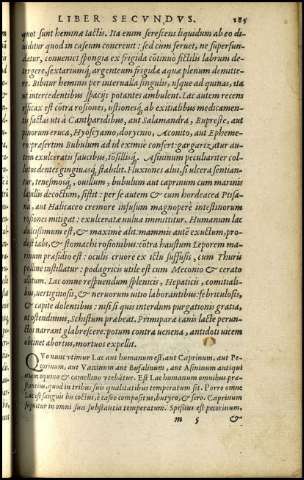 LIBER SECVNDVS. 185
quot sunt heminæ lactis. Ita enim serescens liquidum ab eo di-
uiditur quod in caseum concreuit: sed cum feruet, ne superfun-
datur, conuenit spongia ex frigida cótinuò fictilis labrum de-
tergere, sextariumq; argenteum frigida aqua plenum demitte-
re. Bibitur heminis per interualla singulis, usque ad quinas, ita
ut intercedentibus spacijs potantes ambulent. Lac autem recens
efficax est cótra rosiones, ustionesq; ab exitialibus medicamen-
tis factas uti à Cantharidibus, aut Salamandra, Bupreste, aut
pinorum eruca, Hyoscyamo, dorycnio, Aconito, aut Epheme-
ro: præsertim Bubulum ad id eximiè confert: gargarizatur au-
tem exulceratis faucibus, tosillisq;. Asininum peculiariter col-
lutu dentes gingiuasq; stabilit. Fluxiones alui, si ulcera sentian-
tur, tenesmosq;, ouillum, bubulum aut caprinum cum marinis
decoctum, sistit: per se autem & cum hordeacea Ptisa-
na, aut Halica: eo cremore infusum magnoperè intestinorum
rosiones mitigat: exulceratæ vulua immittitur. Humanum lac
dulcissimum est, & maximè alit: mammis antè exuctum, pro-
dest tabi, & stomachi rosionibus: cótra haustum Leporem mari-
num præsidio est: oculis cruore ex ictu suffusis, cum Thuris
instillatur: podagricis utile est cum Meconio & cerato
Lac omne respuendum spleneticis, Hepaticis, comitiali-
bus, uertiginosis, & neruorum uitio laborantibus: febriculosis,
& capite dolentibus: nisi si quis interdum purgationis gratia,
ut ostendimus, Schistum præbeat. Primiparæ canis lacte perun-
ctis narrant glabrescere: potum contra uenena, antidoti uicem
obtinet abortus, mortuos expellit.
QVo nunc utimur Lac aut humanum est, aut Caprinum, aut Pe-
corinum, aut Vaccinum aut Bufalinum, aut Asininum antiqui
etiam equino & camelino vtebátur. Est Lac humanum omnibus præ-
stantius, quod in tribus suis qualitatibus temperatum sit. Porro omne
Lac ex sanguine bis coctus, è caseo compositus, butyro, & sero. Caprinum
sequitur in omni sua substantia temperatum. Spissius est pecorinum,
m 5 &